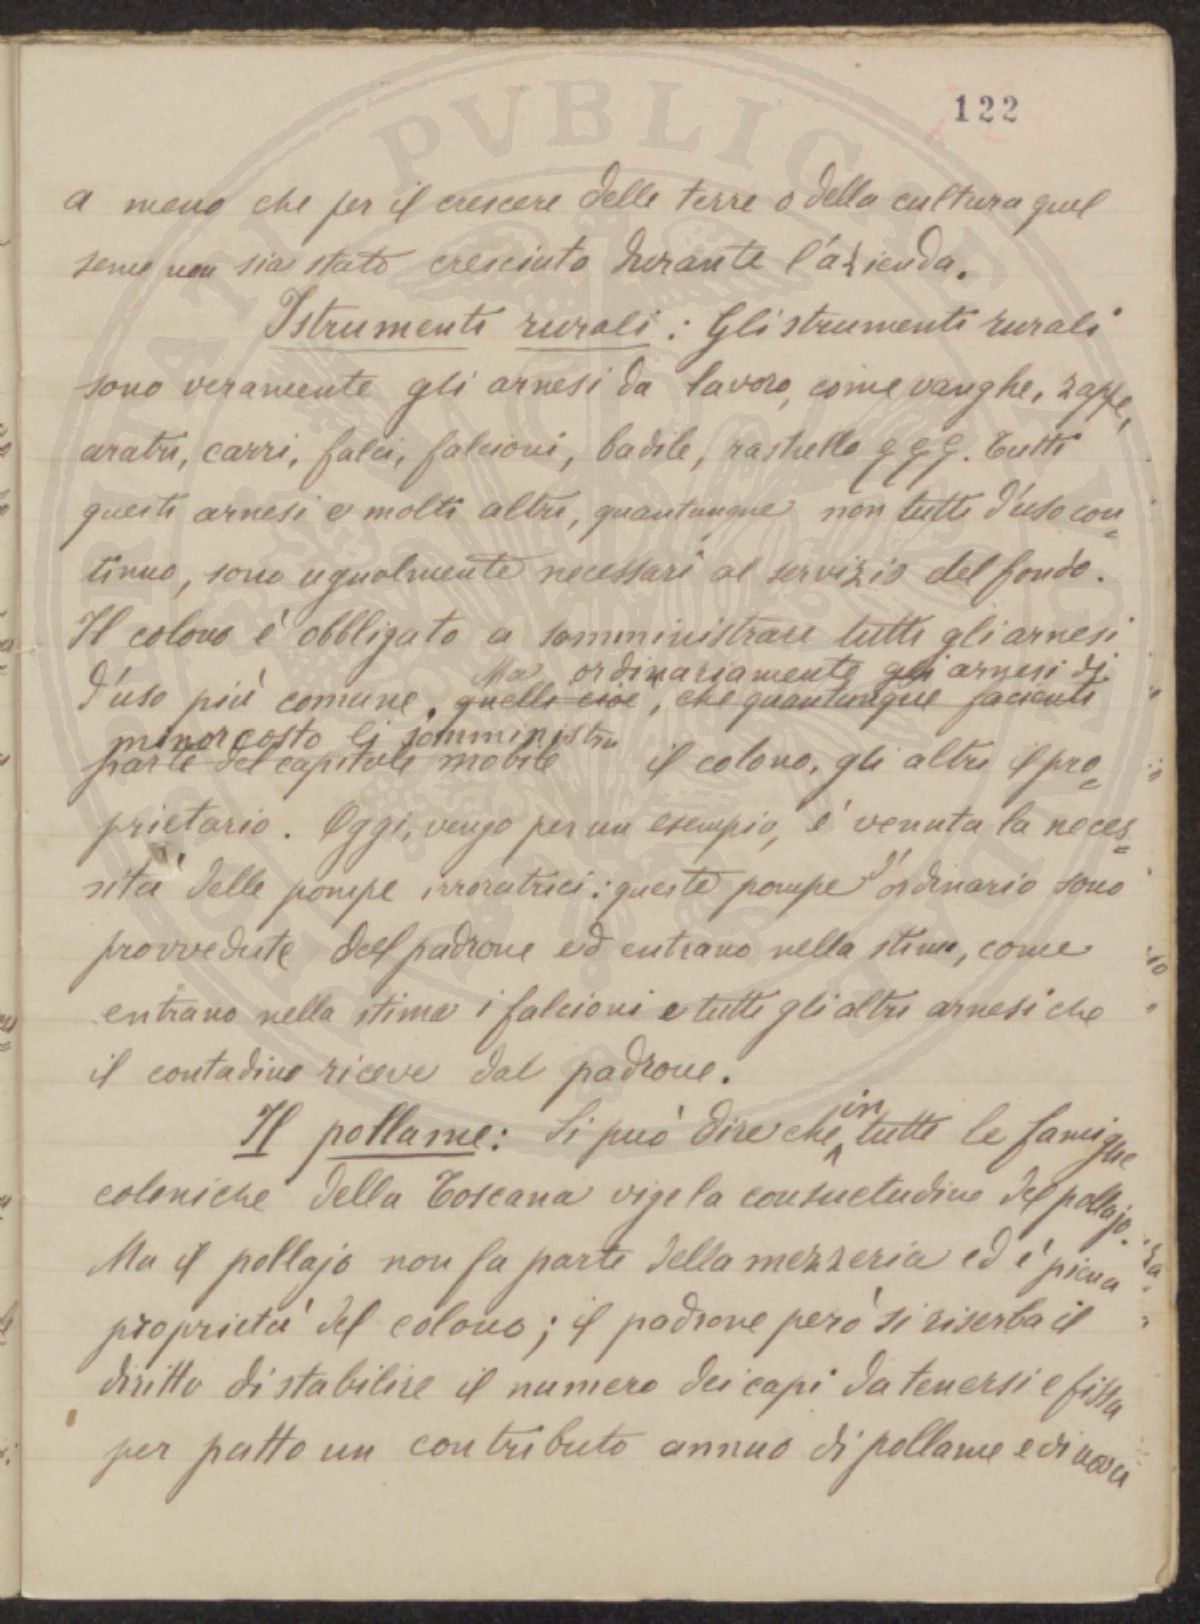 122
a meno che per il crescere delle terre o della cultura quel
seme non sia stato cresciuto durante l'azienda.
Istrumenti rurali: Gli strumenti rurali
sono veramente gli arnesi da lavoro, come vanghe, zappe,
aratri, carri, falci, falcioni, badile, rastrello
Tutti
questi arnesi e molti altri, quantunque non tutti d'uso con=
tinuo, sono ugualmente necessari al servizio del fondo.
Il colono è obbligato a somministrare tutti gli arnesi
d'uso più comune. quelli cioè, che quantunque facienti
Ma ordinariamente gli arnesi di
parte del capitale mobile
minor costo li somministra
il colono, gli altri il pro=
prietario. Oggi, vengo per un esempio, è venuta la neces=
sità delle pompe irroratrici: queste pompe d'ordinario sono
provvedute dal padrone ed entrano nella stima, come
entrano nella stima i falcioni e tutti gli altri arnesi che
il contadino riceve dal padrone.
Il pollame: Si può dire che in tutte le famiglie
coloniche della Toscana vige la consuetudine del pollajo.
Ma il pollajo non fa parte della mezzeria ed è piena
proprietà del colono; il padrone però si riserba il
diritto di stabilire il numero dei capi da tenersi e fissa
per patto un contributo annuo di pollame e di uova